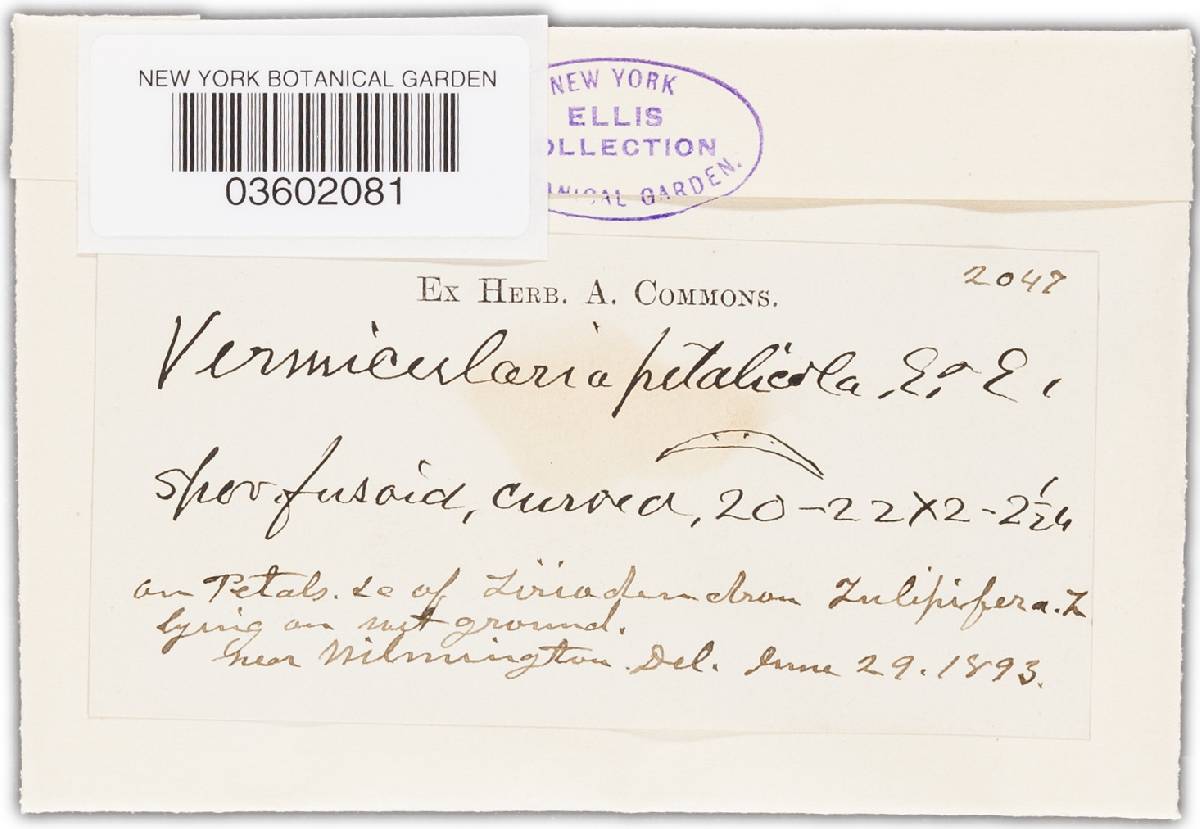 NEW YORK BOTANICAL GARDEN
03602081
NEW YORK
ELLIS
OLLECTION
NICAL GARDEN.
2047
EX HERB. A. COMMONS.
Vermicularia petalicola, E. & E.
spor fusoid, curved, 20-22 X 2-2½ µ
on Petals. &c of Liriodendron Tulipifera. L
lying on wet ground.
near Wilmington. Del. June 29. 1893.